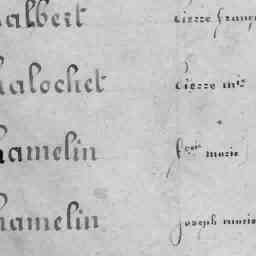 albert Pierre franç
halochet Pierre m^in
hamelin f^cois marie
hamelin joseph marie